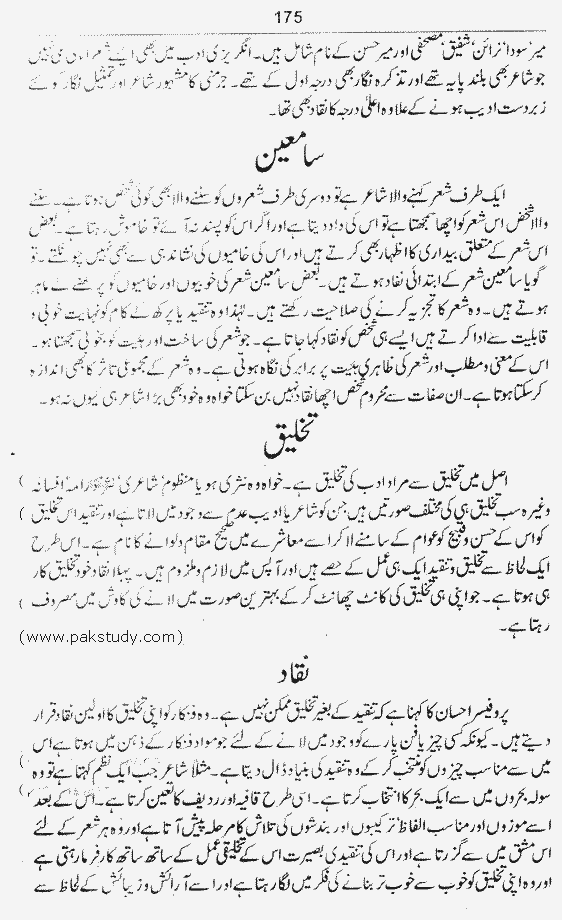 175
میر سودا نرائن شفیق مصحفی اور میر حسن کے نام شامل ہیں۔ انگریزی ادب میں بھی ایسے شعراء کی کمی نہیں
جو شاعر بھی بلند پایہ تھے اور تذکرہ نگار بھی درجہ اول کے تھے۔ جرمنی کا مشہور شاعر اور تمثیل نگار گوئٹے
زبردست ادیب ہونے کے علاوہ اعلیٰ درجہ کا نقاد بھی تھا۔
سامعین
ایک طرف شعر کہنے والا شاعر ہے تو دوسری طرف شعروں کو سننے والا بھی کوئی شخص ہوتا ہے۔ سننے
والا شخص اس شعر کو اچھا سمجھتا ہے تو اس کی داد دیتا ہے اور اگر اس کو پسند نہ آئے تو خاموش رہتا ہے۔ بعض
اس شعر کے متعلق بیداری کا اظہار بھی کرتے ہیں اور اس کی خامیوں کی نشاندہی سے بھی نہیں چونکتے۔ تو
گویا سامعین شعر کے ابتدائی نقاد ہوتے ہیں۔ بعض سامعین شعر کی خوبیوں اور خامیوں کو پرکھنے کے ماہر
ہوتے ہیں۔ وہ شعر کا تجزیہ کرنے کی صلاحیت رکھتے ہیں۔ لہٰذا وہ تنقید یا پرکھ کے کام کو نہایت خوبی و
قابلیت سے ادا کرتے ہیں ایسے ہی شخص کو نقاد کہا جاتا ہے۔ جو شعر کی ساخت اور ہئیت کو بخوبی سمجھتا ہو۔
اس کے معنی و مطلب اور شعر کی ظاہری ہئیت پر برابر کی نگاہ ہوتی ہے۔ وہ شعر کے مجموعی تاثر کا بھی اندازہ
کر سکتا ہوتا ہے۔ ان صفات سے محروم شخص اچھا نقاد نہیں بن سکتا خواہ وہ خود بھی بڑا شاعر ہی کیوں نہ ہو۔
تخلیق
اصل میں تخلیق سے مراد ادب کی تخلیق ہے۔ خواہ وہ نثری ہو یا منظوم شاعری ڈرامہ افسانہ
وغیرہ سب تخلیق ہی کی مختلف صورتیں ہیں جن کو شاعر یا ادیب عدم سے وجود میں لاتا ہے اور تنقید اس تخلیق
کو اس کے حسن و قبیح کو عوام کے سامنے لا کر اسے معاشرے میں صحیح مقام دلوانے کا نام ہے۔ اس طرح
ایک لحاظ سے تخلیق و تنقید ایک ہی عمل کے حصے ہیں اور آپس میں لازم و ملزوم ہیں۔ پہلا نقاد خود تخلیق کار
ہی ہوتا ہے۔ جو اپنی ہی تخلیق کی کانٹ چھانٹ کر کے بہترین صورت میں لانے کی کاوش میں مصروف
رہتا ہے۔
(www.pakstudy.com)
نقاد
پروفیسر احسان کا کہنا ہے کہ تنقید کے بغیر تخلیق ممکن نہیں ہے۔ وہ فنکار کو اپنی تخلیق کا اولین نقاد قرار
دیتے ہیں۔ کیونکہ کسی چیز یا فن پارے کو وجود میں لانے کے لئے جو مواد فنکار کے ذہن میں ہوتا ہے اس
میں سے مناسب چیزوں کو منتخب کر کے وہ تنقید کی بنیاد ڈال دیتا ہے۔ مثلاً شاعر جب ایک نظم کہتا ہے تو وہ
سولہ بحروں میں سے ایک بحر کا انتخاب کرتا ہے۔ اسی طرح قافیہ اور ردیف کا تعین کرتا ہے۔ اس کے بعد
اسے موزوں اور مناسب الفاظ ترکیبوں اور بندشوں کی تلاش کا مرحلہ پیش آتا ہے اور وہ ہر شعر کے لئے
اس مشق میں سے گزرتا ہے اور اس کی تنقیدی بصیرت اس کے تخلیقی عمل کے ساتھ ساتھ کارفرما رہتی ہے
اور وہ اپنی تخلیق کو خوب سے خوب تر بنانے کی فکر میں لگا رہتا ہے اور اسے آرائش و زیبائش کے لحاظ سے